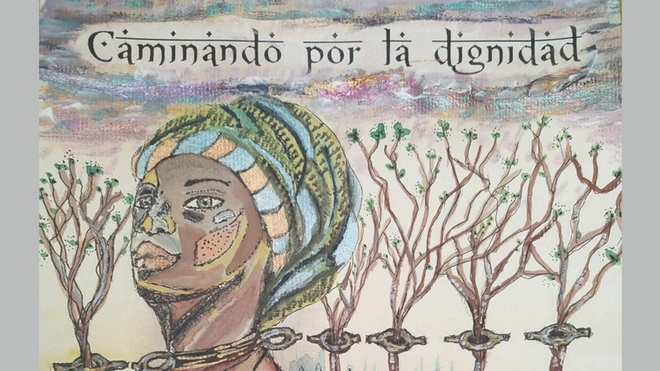 Caminando por la dignidad